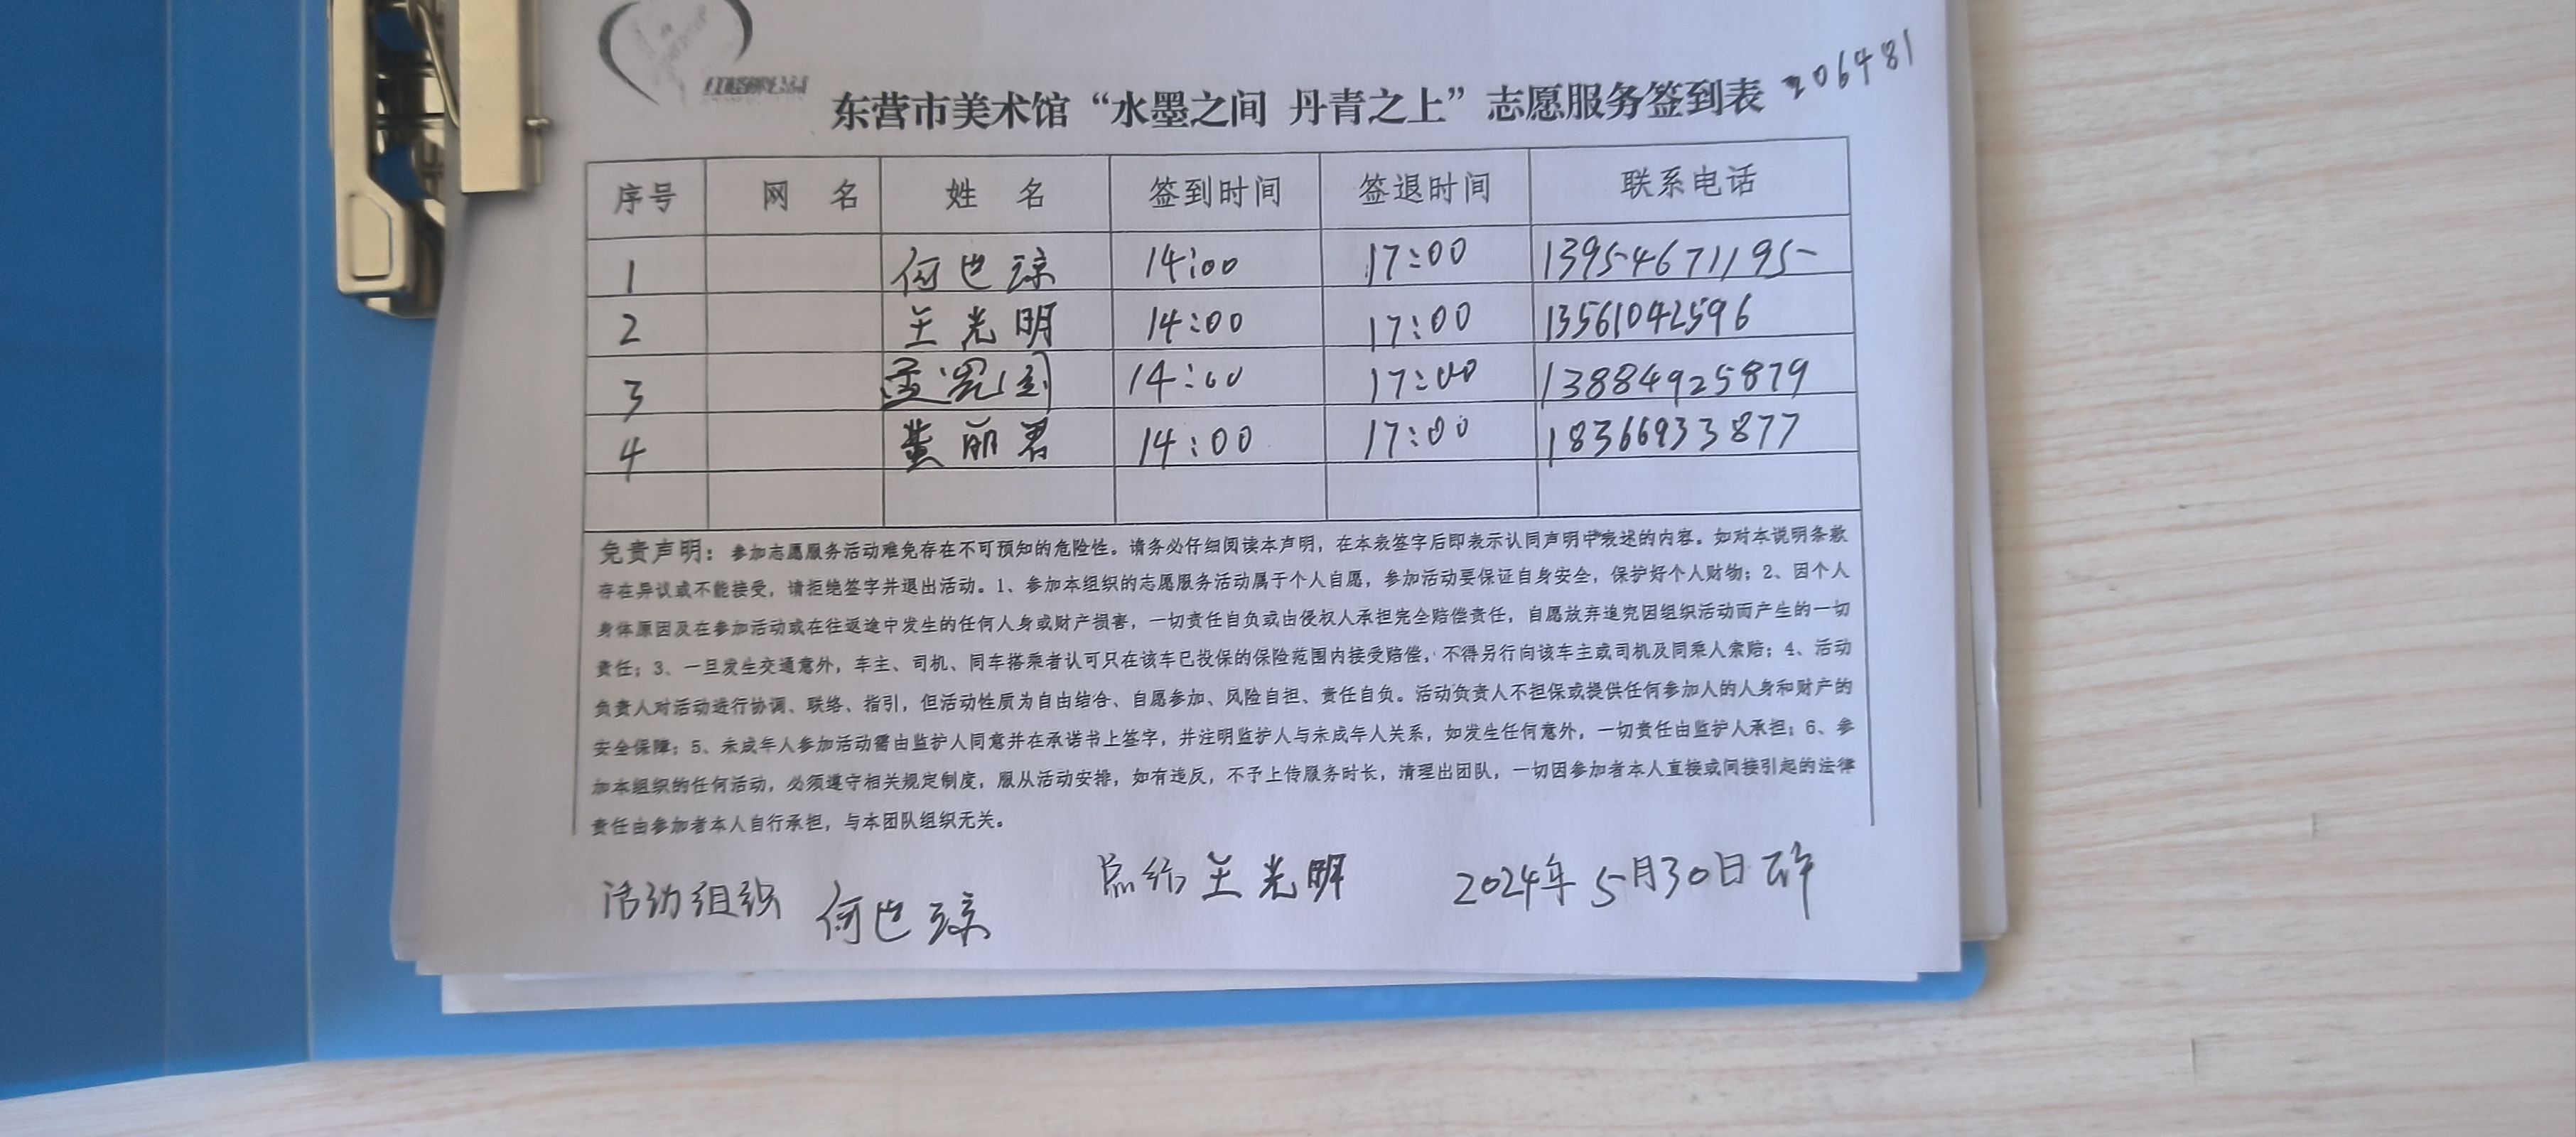 206481
东营市美术馆“水墨之间 丹青之上”志愿服务签到表
序号 网 名 姓 名 签到时间 签退时间 联系电话
1 何也琼 14:00 17:00 13954671195
2 王光明 14:00 17:00 13561042596
3 14:00 17:00 13884925879
4 黄丽君 14:00 17:00 18366933877
免责声明：参加志愿服务活动难免存在不可预知的危险性。请务必仔细阅读本声明，在本表签字后即表示认同声明中表述的内容。如对本说明条款
存在异议或不能接受，请拒绝签字并退出活动。1、参加本组织的志愿服务活动属于个人自愿，参加活动要保证自身安全，保护好个人财物；2、因个人
身体原因及在参加活动或在往返途中发生的任何人身或财产损害，一切责任自负或由侵权人承担完全赔偿责任，自愿放弃追究因组织活动而产生的一切
责任；3、一旦发生交通意外，车主、司机、同车搭乘者认可只在该车已投保的保险范围内接受赔偿，不得另行向该车主或司机及同乘人索赔；4、活动
负责人对活动进行协调、联络、指引，但活动性质为自由结合、自愿参加、风险自担、责任自负。活动负责人不担保或提供任何参加人的人身和财产的
安全保障；5、未成年人参加活动需由监护人同意并在承诺书上签字，并注明监护人与未成年人关系，如发生任何意外，一切责任由监护人承担；6、参
加本组织的任何活动，必须遵守相关规定制度，服从活动安排，如有违反，不予上传服务时长，清理出团队，一切因参加者本人直接或间接引起的法律
责任由参加者本人自行承担，与本团队组织无关。
活动组织 何也琼 总结 王光明 2024年5月30日下午